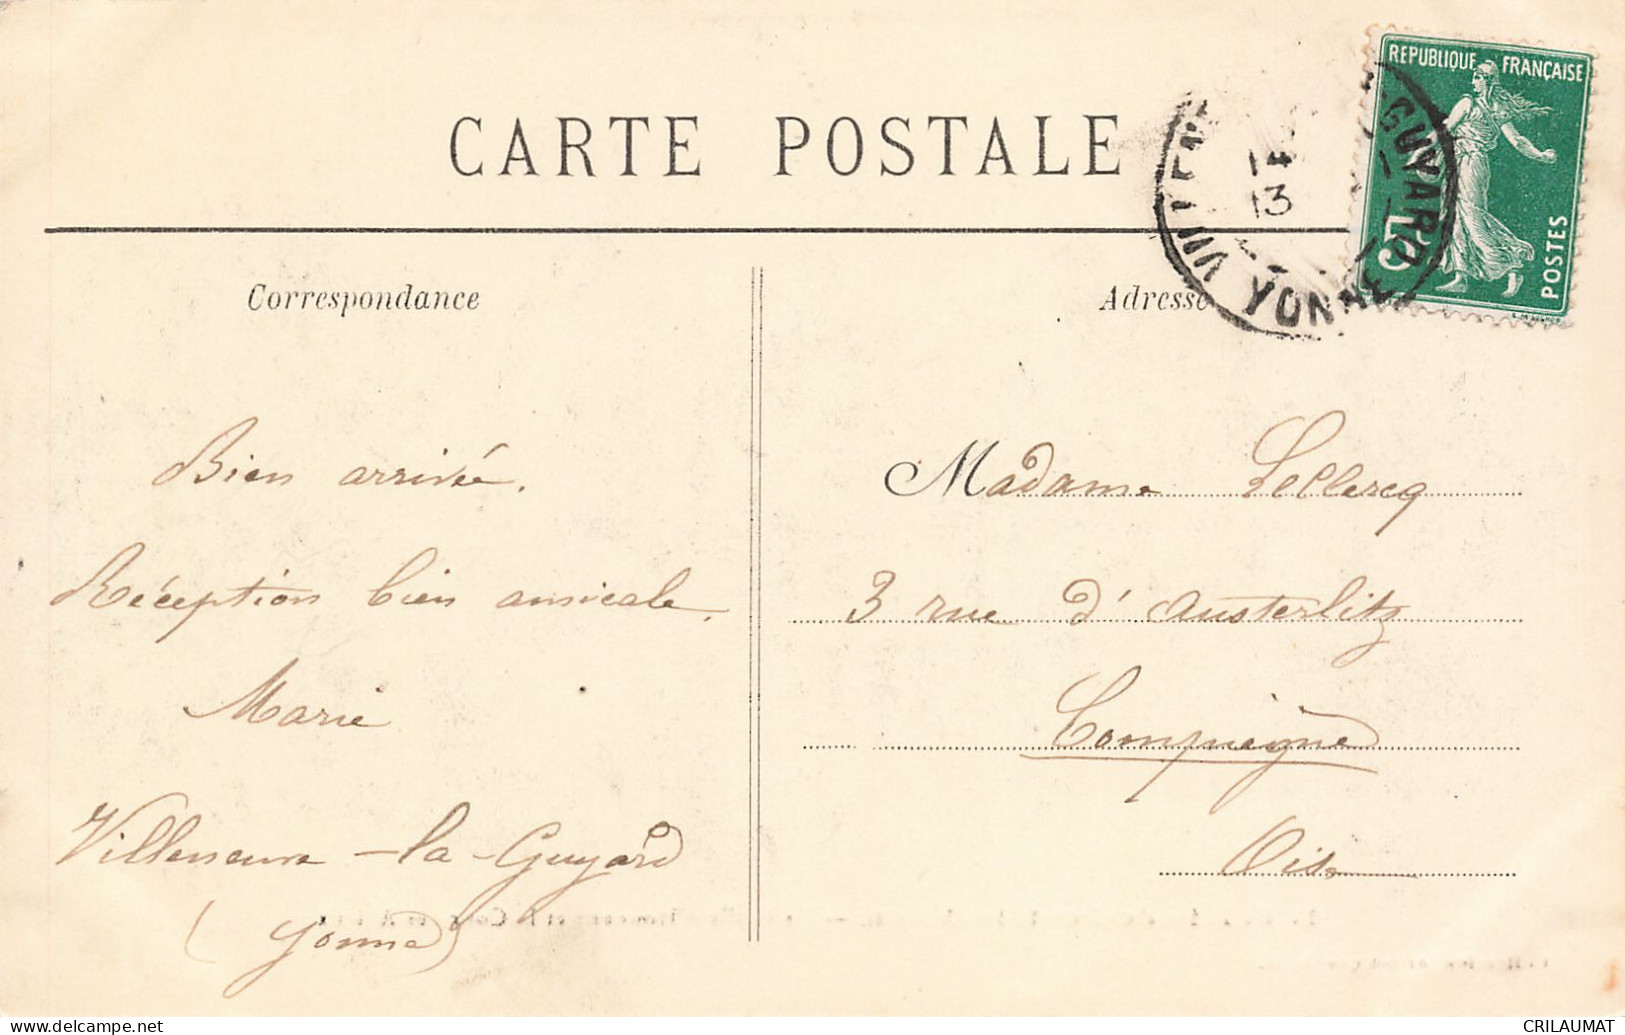 CARTE POSTALE
REPUBLIQUE FRANÇAISE
5
POSTES
14
13
YONNE
Correspondance
Adresse
Bien arrivée.
Réception bien amicale.
Marie
Villeneuve-la-Guyard
(Yonne)
Madame Leclercq
3 rue d'Austerlitz
Compiègne
Oise
delcampe.net
CRILAUMAT